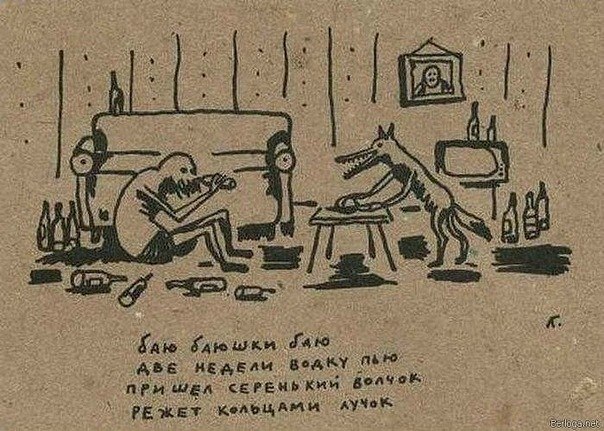 К.
баю баюшки баю
две недели водку пью
пришел серенький волчок
режет кольцами лучок
Berloga.net